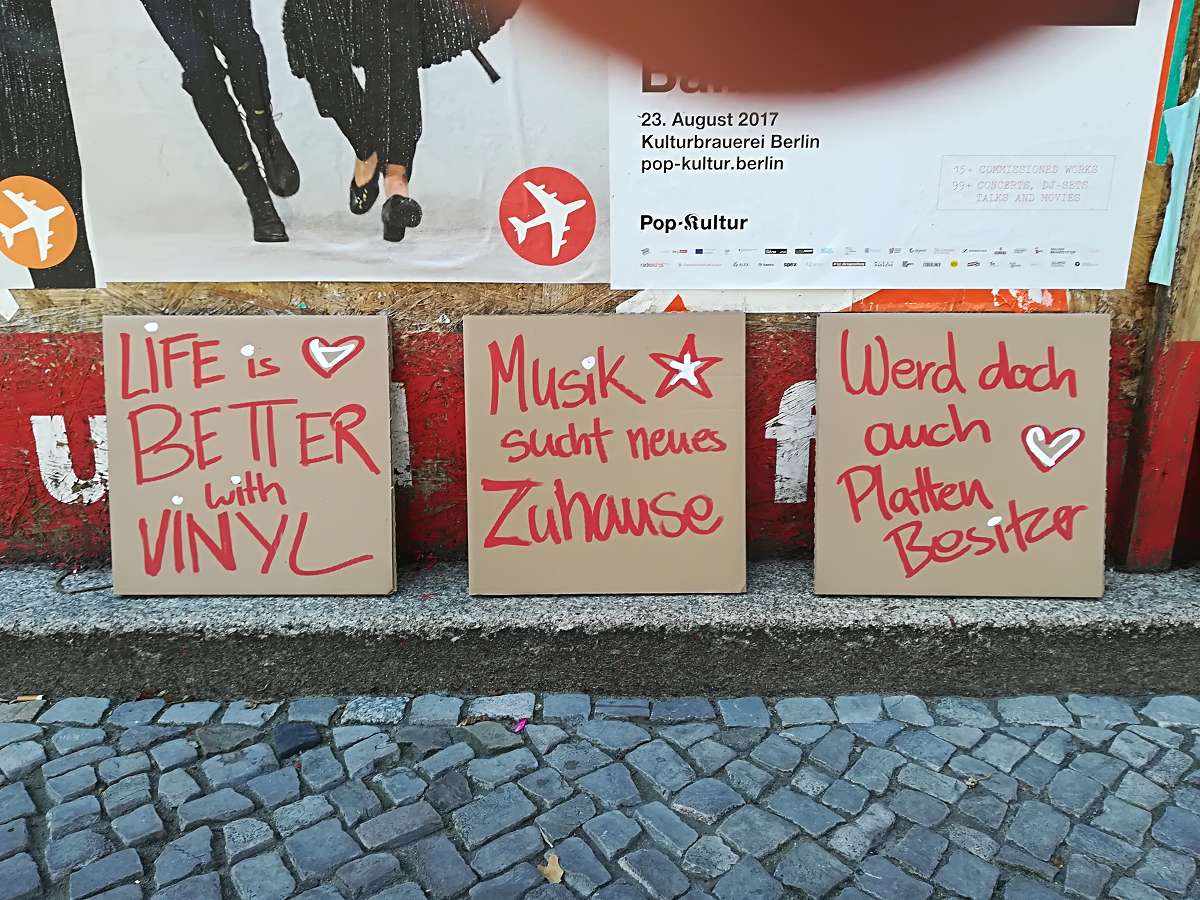 23. August 2017
Kulturbrauerei Berlin
pop-kultur.berlin
15+ COMMISSIONED WORKS
99+ CONCERTS, DJ-SETS
TALKS AND MOVIES
Pop-Kultur
LIFE is
BETTER
with
VINYL
Musik
sucht neues
Zuhause
Werd doch
auch
Platten
Besitzer